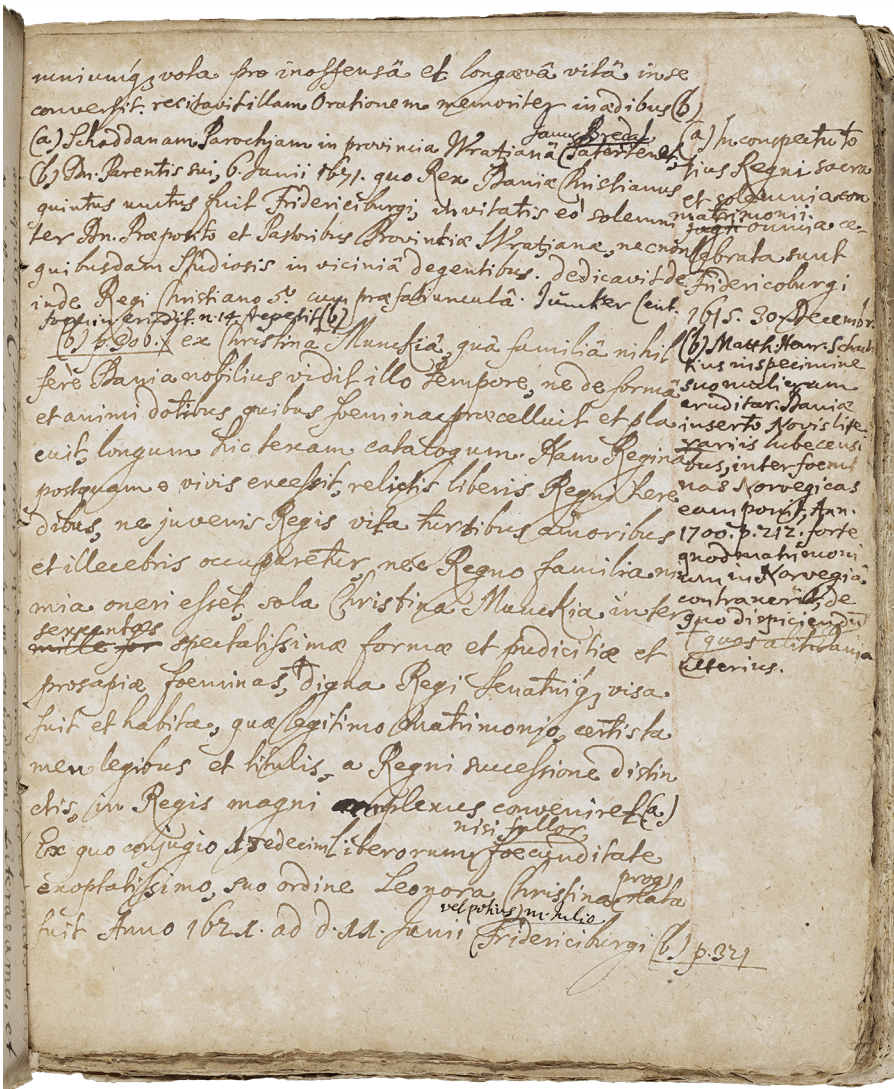 mniumq́; vota pro inoffensâ et longævâ vitâ in se
convertit. recitavit illam Orationem memoriter in ædibus (b)
Janus Bredal
(a) Schaddanam Parochjam in provincia Wratzianâ
(b) Dn. Parentis sui, 6. Junii 1671. quo Rex Daniæ Christianus
quintus unctus fuit Fridericiburgi, invitatis eò solemni
ter Dn. Præposito et Pastoribus Provinciæ Wratzianæ, necnon
quibusdam Studiosis in viciniâ degentibus. dedicavit de
inde Regi Christiano 5.to cum præfatiunculâ. Juncker Cent.
fœmin. erudit. n. 14. repetit (b)
(b) p. 306. ex Christina Munckiâ, quâ familiâ nihil
ferè Dania nobilius vidit illo tempore, ne de formâ
et animi dotibus, quibus foemina præcelluit et pla
cuit, longum hic texam catalogum. Nam Reginâ
postquam e vivis excessit, relictis liberis Regni here
dibus, ne juvenis Regis vita turbibus amoribus
et illecebris occuparetur, nec Regno familia ni
mia oneri esset, sola Christina Munckia inter
sexcentas
mille for spectatissimæ formæ et pudicitiæ et
prosapiæ foeminas, digna Regi Senatuiq́; visa
fuit et habita, quæ legitimo matrimonio, certis ta
men legibus et titulis, a Regni successione distin
ctis, in Regis magni amplexus conveniret (a)
nisi fallor
Ex quo conjugio tredecim Liberorum foecunditate
exoptatissimo, suo ordine Leonora Christina prog
nata
vel potius) m. Julio
fuit Anno 1621. ad d. 11. Junii Fridericiburgi (b) p. 321
(a) In conspectu to
tius Regni sacra
et solemnia con
matrimonii
omnia ce-
lebrata sunt
Fridericoburgi
1615. 30 Decembr.
(b) Matth. Henr. Schach
tius in specimine
suo mulierum
eruditar. Daniæ
inserto Novis lite
rariis Lubecensi
bus, inter foemi
nas Norvegicas
eam ponit, Ann.
1700. p. 212. forte
quod matrimoni
um in Norvegiâ
contraxerit, de
quo dispiciendũ
ulterius.